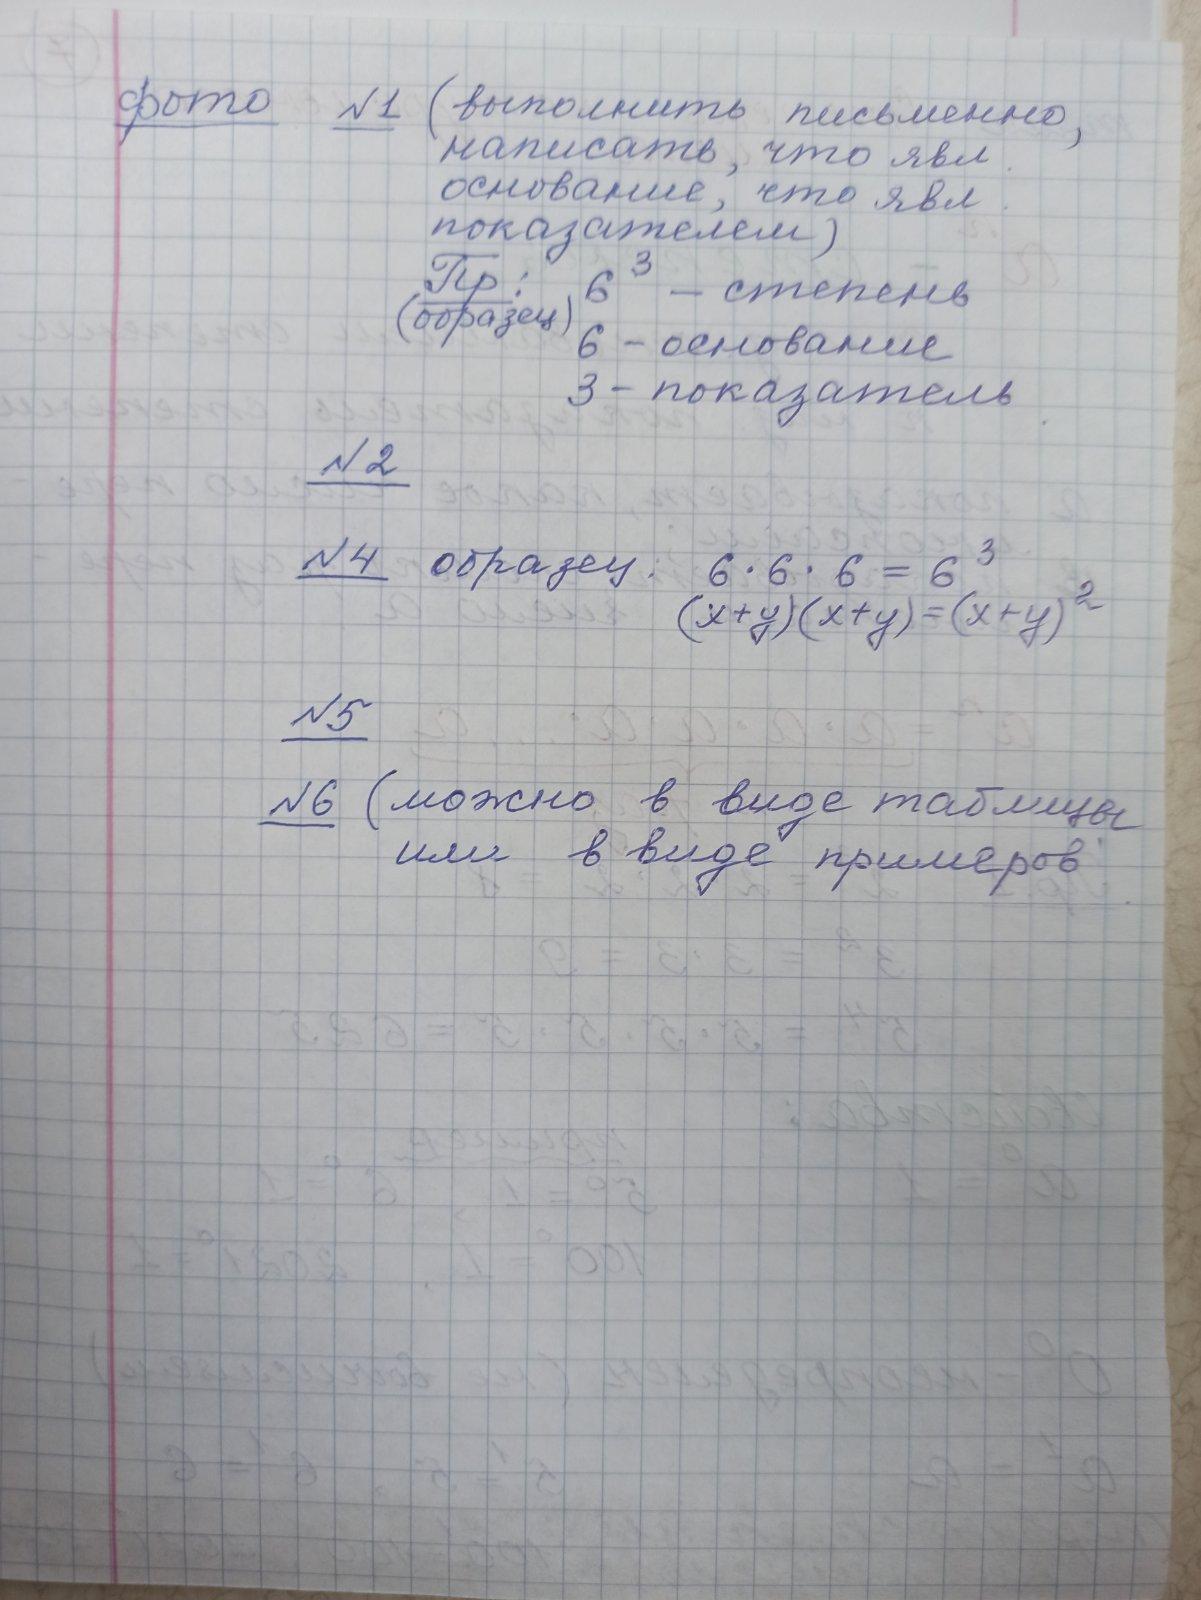 фото №1 (выполнить письменно,
написать, что явл.
основание, что явл.
показателем)
Пр: 6³ – степень
(образец)
6 – основание
3 – показатель
№2
№4 образец: 6·6·6 = 6³
(x+y)(x+y)=(x+y)²
№5
№6 (можно в виде таблицы
или в виде примеров